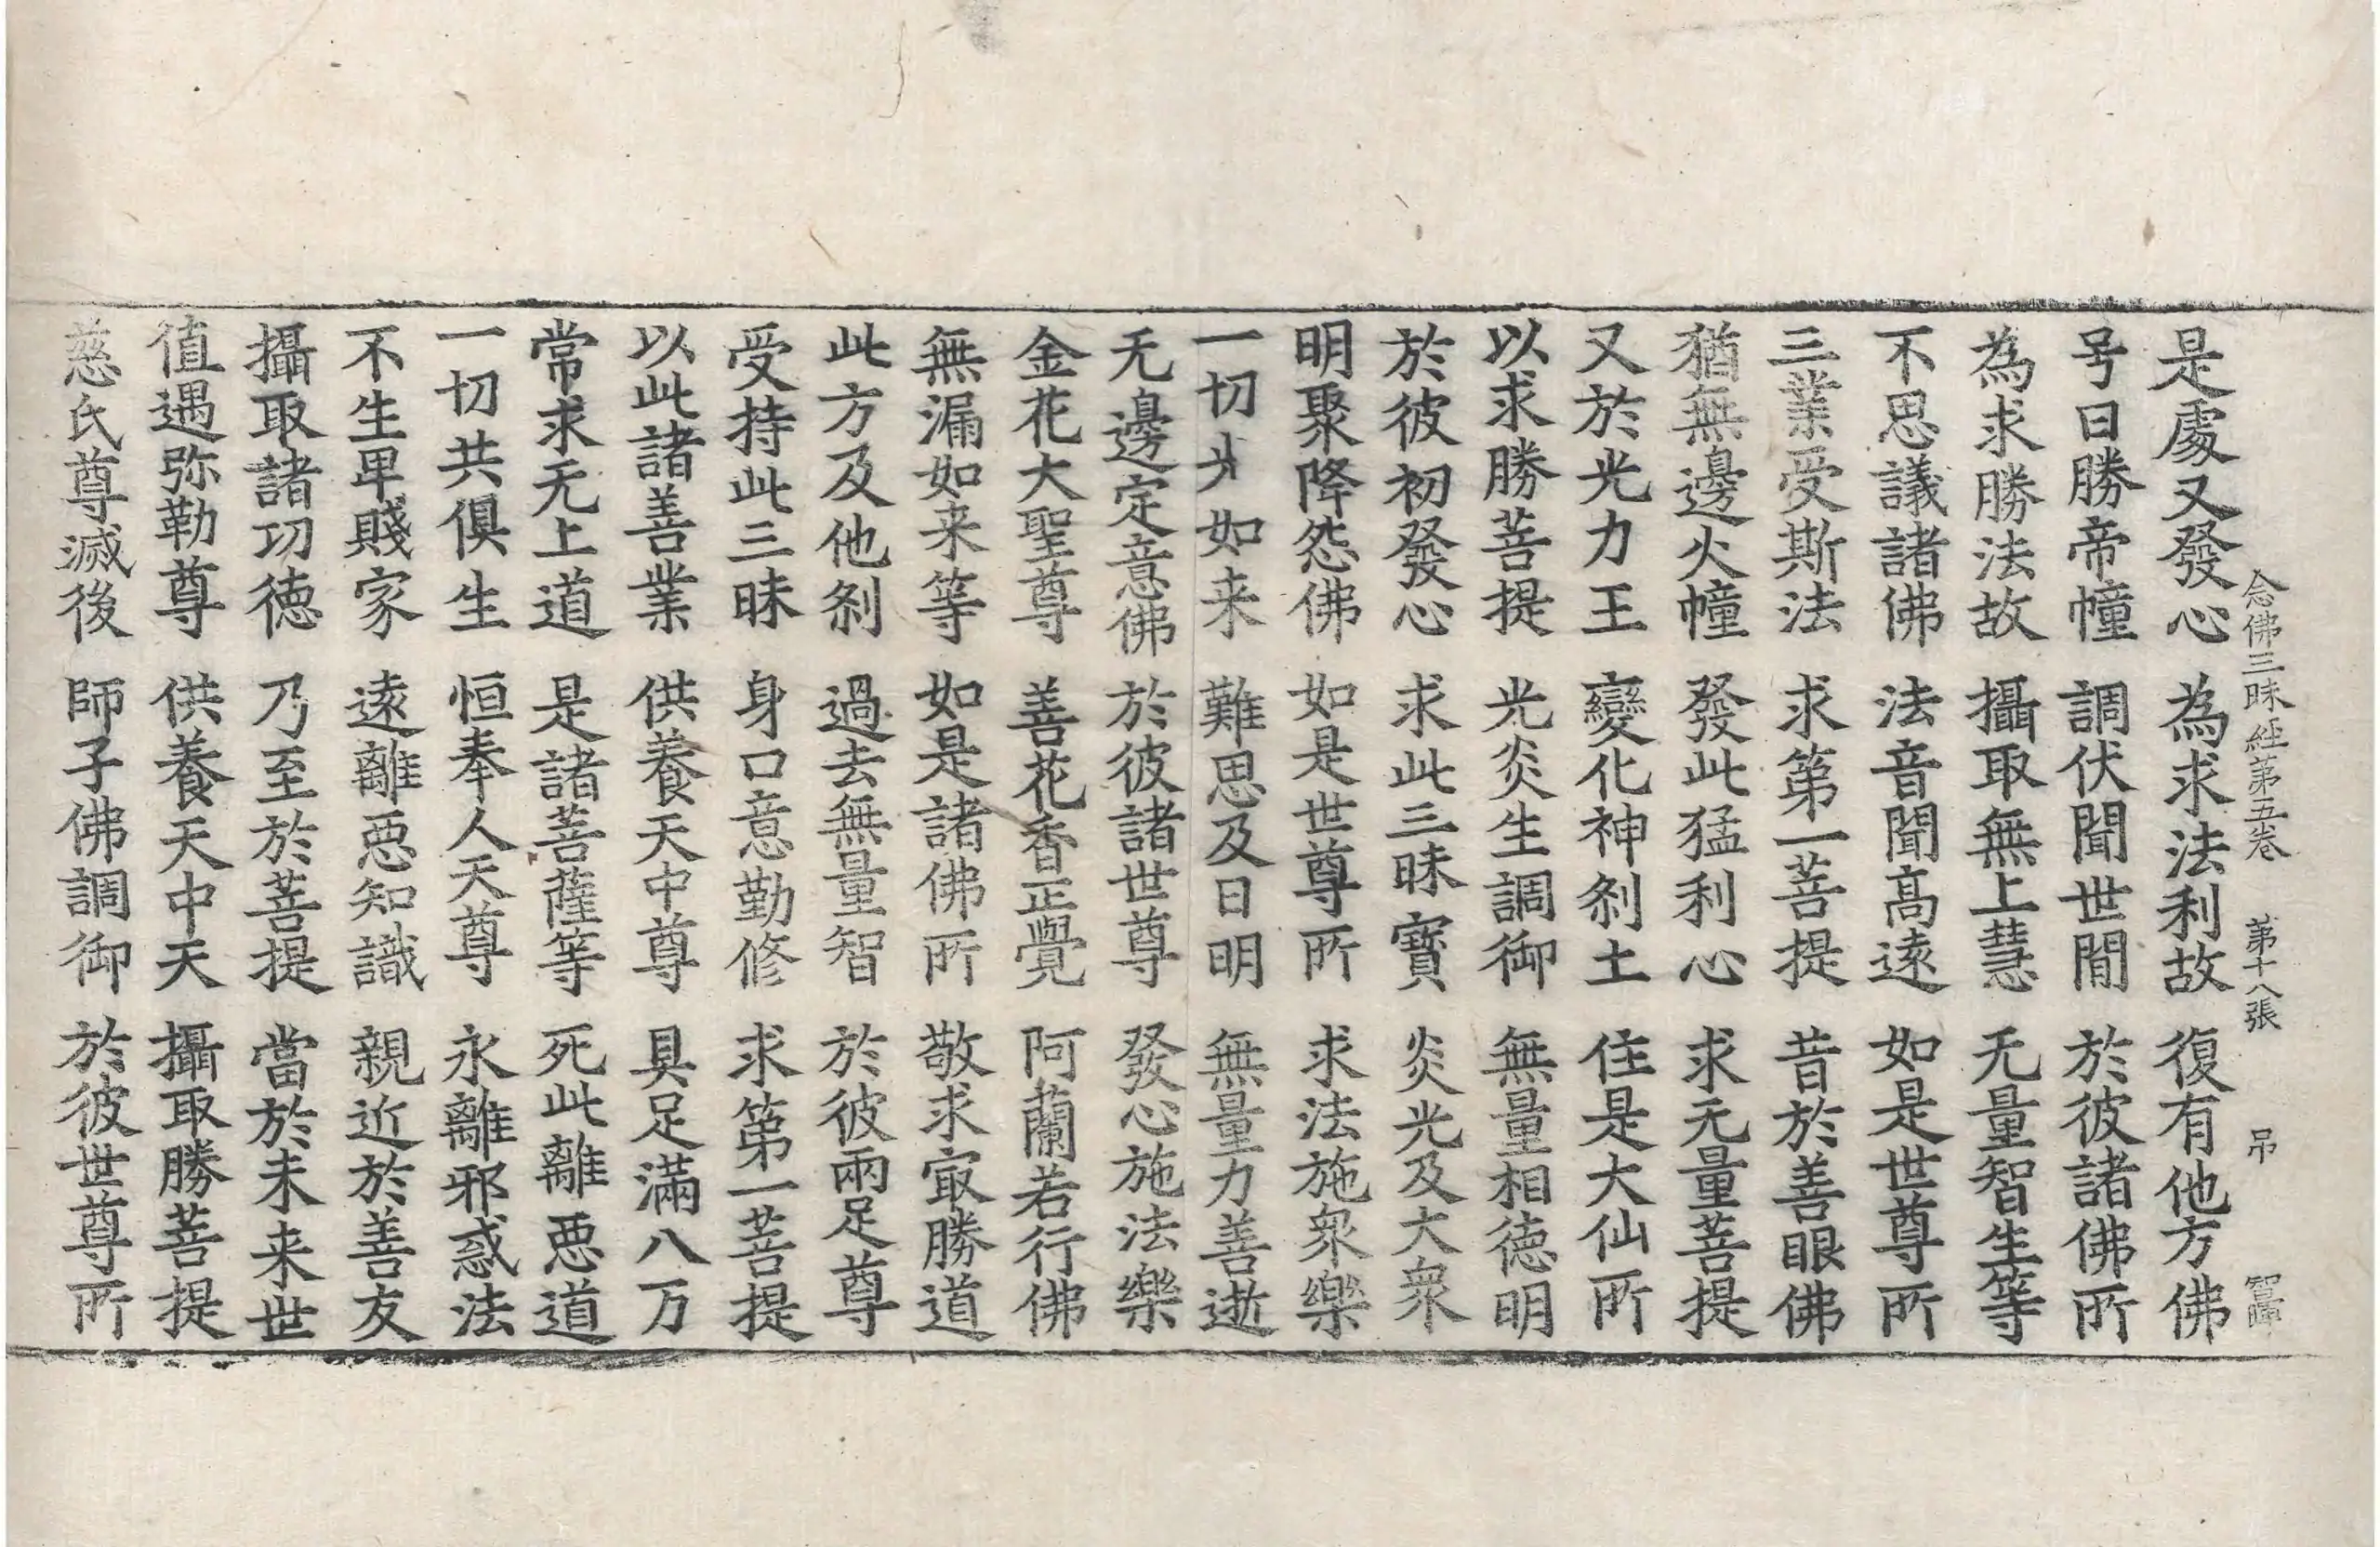 念佛三昧経苐五卷　苐十八張　吊
是處又發心　為求法利故　復有他方佛
号曰勝帝幢　調伏聞世間　於彼諸佛所
為求勝法故　攝取無上慧　无量智生等
不思議諸佛　法音聞髙逺　如是世尊所
三業受斯法　求第一菩提　昔於善眼佛
猶無邊火幢　發此猛利心　求无量菩提
又於光力王　變化神刹土　住是大仙所
以求勝菩提　光炎生調御　無量相徳明
於彼初發心　求此三昧寶　炎光及大衆
明聚降怨佛　如是世尊所　求法施衆樂
一切如来　難思及日明　無量力善逝
无邊定意佛　於彼諸世尊　發心施法樂
金花大聖尊　善花香正覺　阿蘭若行佛
無漏如来等　如是諸佛所　敬求冣勝道
此方及他刹　過去無量智　於彼兩足尊
受持此三昧　身口意勤修　求第一菩提
以此諸善業　供養天中尊　具足滿八万
常求无上道　是諸菩薩等　死此離悪道
一切共俱生　恒奉人天尊　永離邪惑法
不生卑賤家　逺離悪知識　親近於善友
攝取諸功徳　乃至於菩提　當於未来世
值遇弥勒尊　供養天中天　攝取勝菩提
慈氏尊滅後　師子佛調御　於彼世尊所